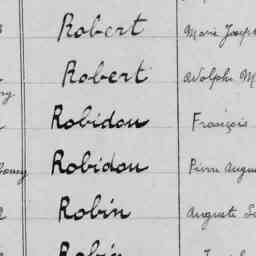 Robert Marie Josep
Robert Adolphe M
Robidou François
Robidou Pierre Augu
Robin Auguste
Robin